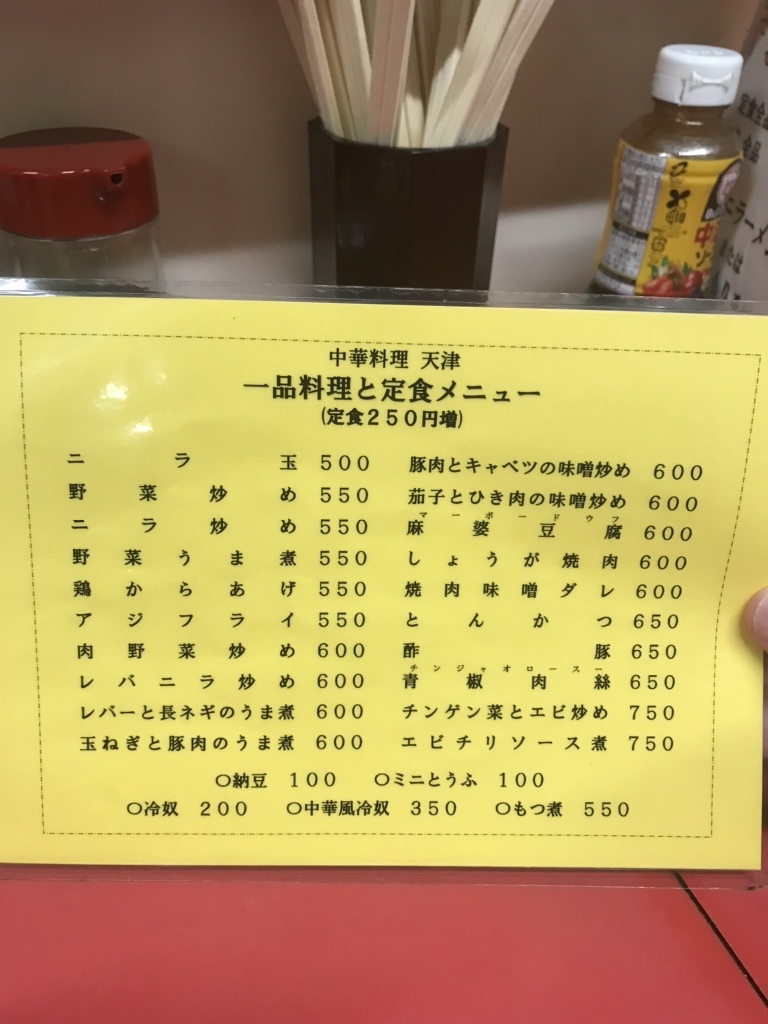 中華料理 天津
一品料理と定食メニュー
(定食250円増)
ニラ玉 500
野菜炒め 550
ニラ炒め 550
野菜うま煮 550
鶏からあげ 550
アジフライ 550
肉野菜炒め 600
レバニラ炒め 600
レバーと長ネギのうま煮 600
玉ねぎと豚肉のうま煮 600
豚肉とキャベツの味噌炒め 600
茄子とひき肉の味噌炒め 600
マーボードウフ
麻婆豆腐 600
しょうが焼肉 600
焼肉味噌ダレ 600
とんかつ 650
酢豚 650
チンジャオロースー
青椒肉絲 650
チンゲン菜とエビ炒め 750
エビチリソース煮 750
○納豆 100 ○ミニとうふ 100
○冷奴 200 ○中華風冷奴 350 ○もつ煮 550